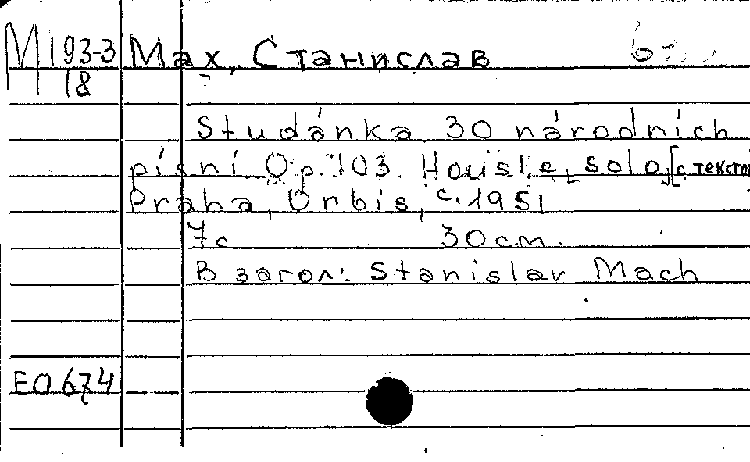 М 193-3 Мах, Станислав
18
Studánka 30 národních
písní. Op. 103. Housle, solo, [с текстом
Praha, Orbis, c. 1951
7с 30cm.
В загол: Stanislav Mach
EO 674